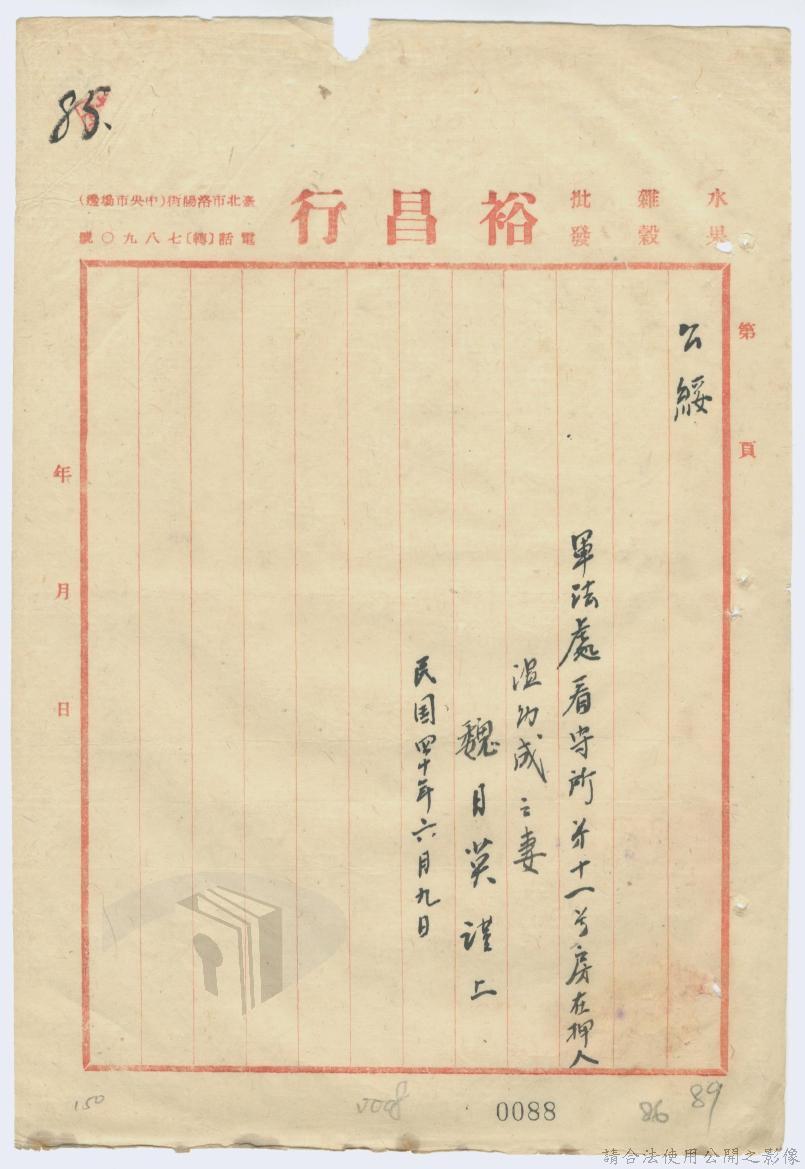 85.
水果
雜穀
批發
裕昌行
臺北市洛陽街(中央市場邊)
電話〔轉〕七八九〇號
第 頁
公綏
軍法處看守所第十一号房在押人
温幼成之妻
魏月英謹上
民国四十年六月九日
年 月 日
150
0088
86
89
請合法使用公開之影像